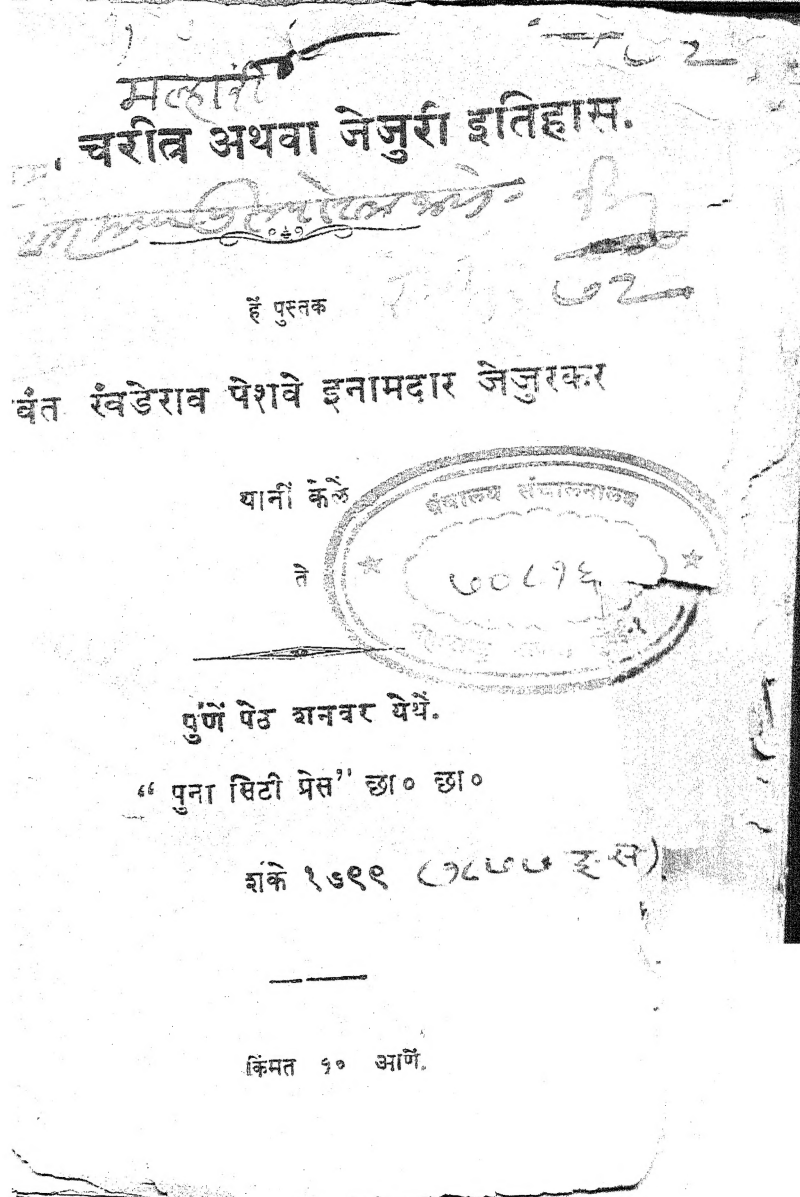 ७२
मल्हारी
चरीत्र अथवा जेजुरी इतिहास.
७२
हें पुस्तक
वंत खंडेराव पेशवे इनामदार जेजुरकर
यानीं केलें
ग्रंथालय संचालनालय
७०८१६
ते
पुणें पेठ शनवर येथें.
“ पुना सिटी प्रेस” छा० छा०
शके १७९९ (१८७७ इ.स).
किंमत १० आणें.